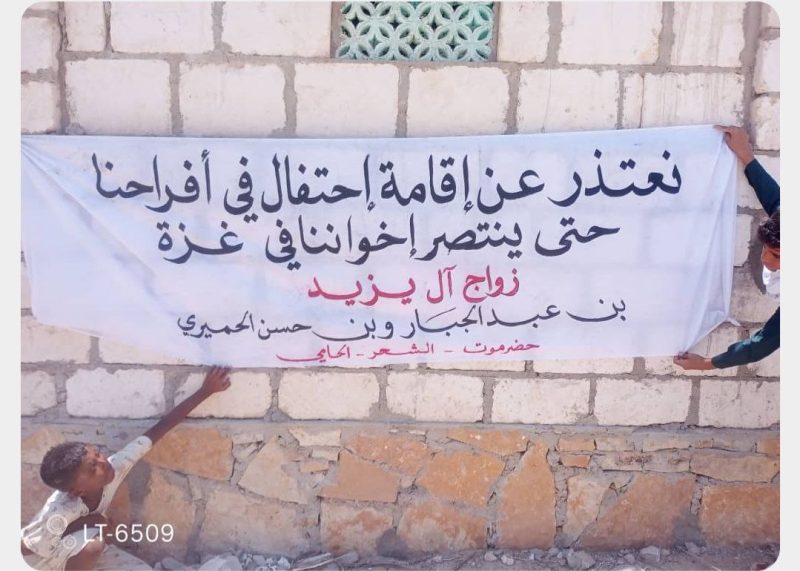 نعتذر عن إقامة إحتفال في أفراحنا
حتى ينتصر إخواننا في غزة
زواج آل يزيد
بن عبد الجبار وبن حسن الحميري
حضرموت - الشحر - الحامي
LT-6509